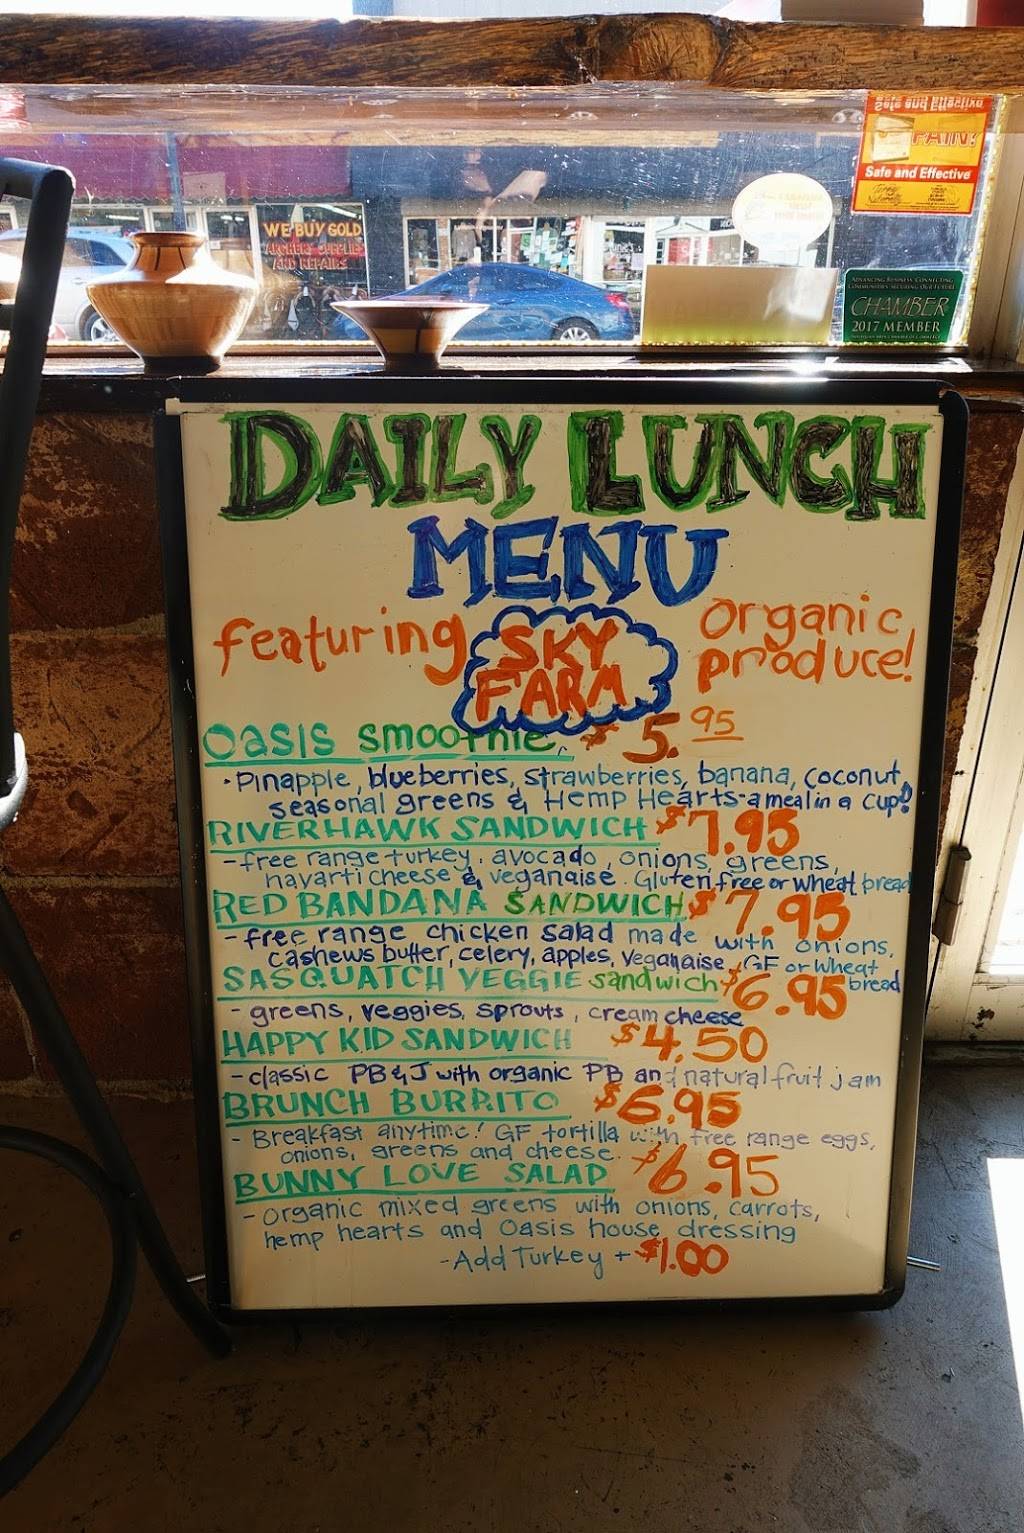 Safe and Effective
PAIN?
Safe and Effective
WE BUY GOLD
ARCHERY SUPPLIES
AND REPAIRS
ADVANCING BUSINESS CONNECTING
COMMUNITIES SECURING OUR FUTURE
CHAMBER
2017 MEMBER
DAILY LUNCH
MENU
featuring SKY FARM organic produce!
Oasis smoothie $5.95
• Pinapple, blueberries, strawberries, banana, coconut,
seasonal greens & Hemp Hearts-a meal in a cup!
RIVERHAWK SANDWICH $7.95
- free range turkey, avocado, onions, greens,
havarti cheese & veganaise. Gluten free or wheat bread
RED BANDANA SANDWICH $7.95
- free range chicken salad made with onions,
cashews butter, celery, apples, veganaise, GF or wheat
bread
SASQUATCH VEGGIE sandwich $6.95
- greens, veggies, sprouts, cream cheese
HAPPY KID SANDWICH $4.50
- classic PB & J with organic PB and natural fruit jam
BRUNCH BURRITO $6.95
- Breakfast anytime! GF tortilla with free range eggs,
onions, greens and cheese.
BUNNY LOVE SALAD $6.95
- organic mixed greens with onions, carrots,
hemp hearts and Oasis house dressing
- Add Turkey + $1.00